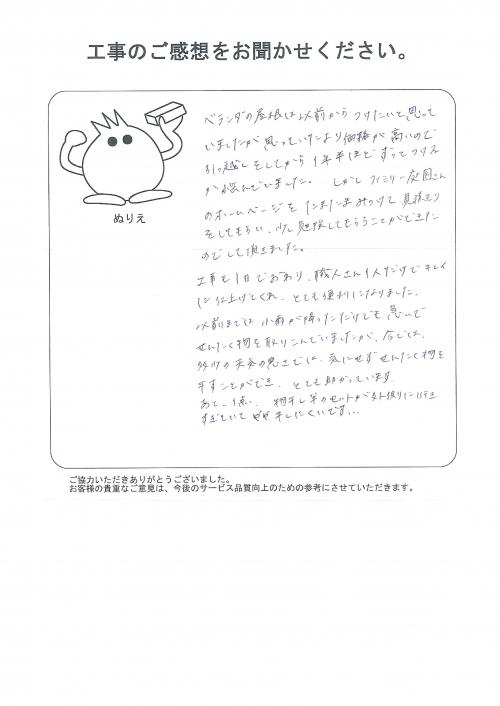 工事のご感想をお聞かせください。
ぬりえ
ベランダの屋根は以前からつけたいと思って
いましたが思っていたより価格が高いので
引っ越しをしてから1年半ほどずっとつけるか
か悩んでいました。しかしファミリー庭園さん
のホームページをたまたまみつけて見積もり
をしてもらい、少し勉強してもらうことができた
のでして頂きました。
工事も1日でおわり、職人さん1人だけでキレイ
に仕上げてくれ、とても便利になりました。
以前までは小雨が降っただけでも急いで
せんたく物を取りこんでいましたが、今では、
多少の天気の悪さでは、気にせずせんたく物を
干すことができ、とても助かっています。
あと、1点、物干し竿のセットが外側に行き
すぎていてやや干しにくいです…
ご協力いただきありがとうございました。
お客様の貴重なご意見は、今後のサービス品質向上のための参考にさせていただきます。